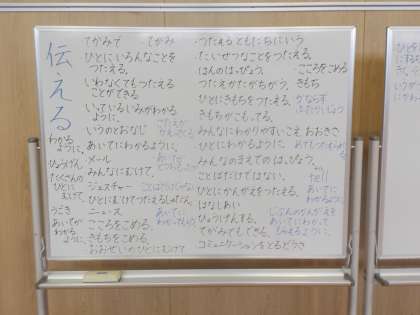 伝える
わかる
ように、
ひょうげん
たくさんの
ひとに
むけて
うごき
あいてが
わかる
ように、
てがみで
てがみ
ひとにいろんなことを
つたえる。
いわなくてもつたえる
ことができる
いっているいみがわかる
ように、
いうのとおなじ
あいてにわかるように、
メール
みんなにむけて、
ジェスチャー
ことばじゃない
ひとにむけてつたえる
ニュース
あいてに
こころをこめる
きもちをこめる、
おおぜいのひとにむけて
つたえる ともだちにいう
たいせつなことをつたえる。
はんのはっぴょう
こころをこめる
つたえかたがちがう、
きもち
ひとにきもちをつたえる、
かならず
きもちがこもってる。
みんなにわかりやすいこえ
おおきさ
ひとにわかるように、
みんなのまえでのはっぴょう、
ことばだけではない。
tell
ひとにかんがえをつたえる、
あいてに
わかるように、
はなしあい
ひょうげんする、
じぶんのかんがえを
あいてにわかって
もらえるように、
てがみでもできる、
コミュニケーションをとるどうさ